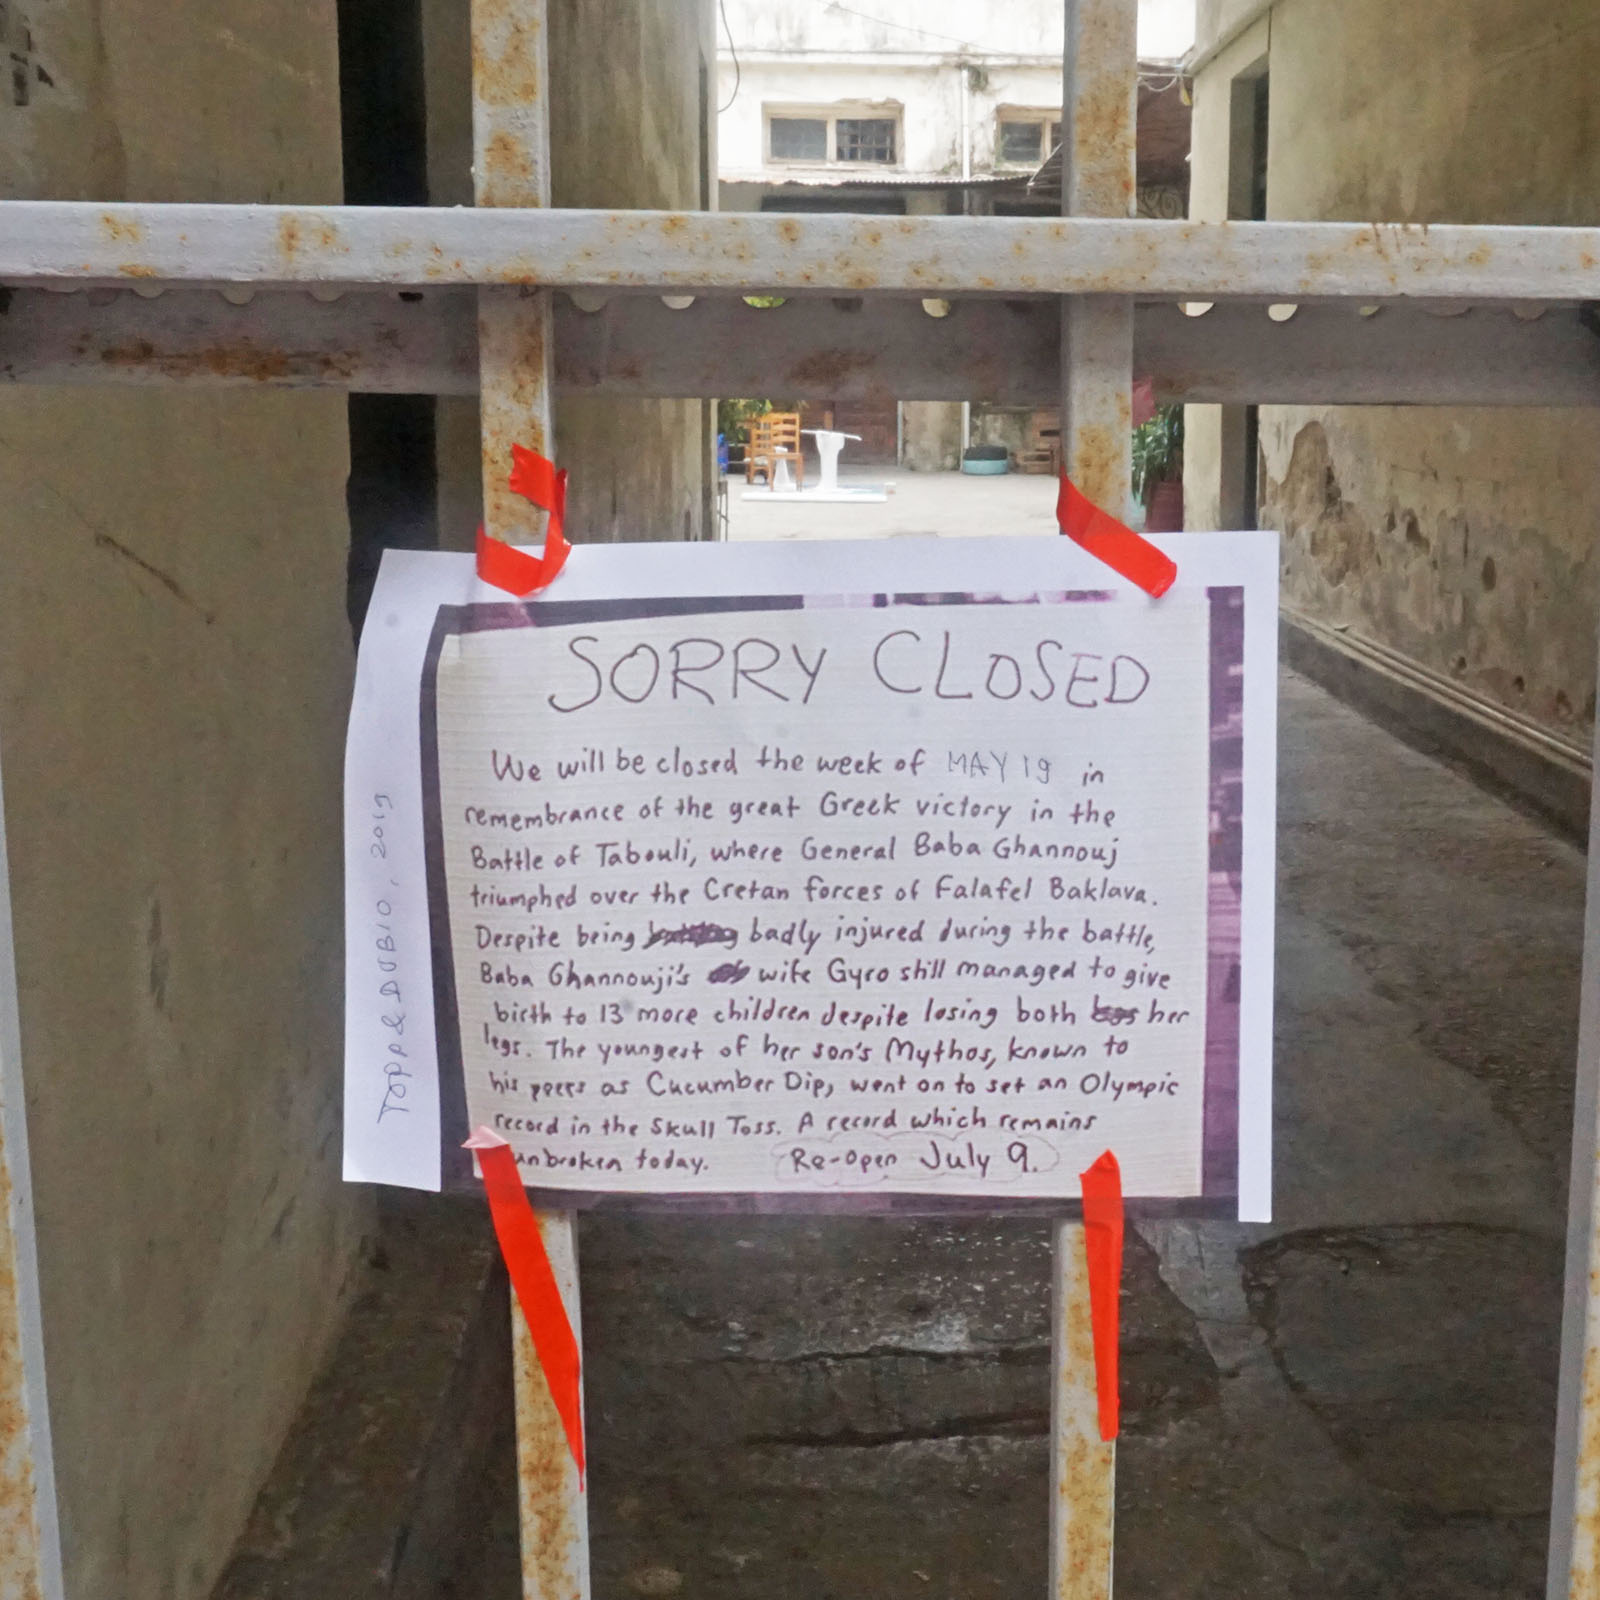 SORRY CLOSED
We will be closed the week of MAY 19 in
remembrance of the great Greek victory in the
Battle of Tabouli, where General Baba Ghannouj
triumphed over the Cretan forces of Falafel Baklava.
Despite being badly injured during the battle,
Baba Ghannouji's wife Gyro still managed to give
birth to 13 more children despite losing both her
legs. The youngest of her son's Mythos, known to
his peers as Cucumber Dip, went on to set an Olympic
record in the Skull Toss. A record which remains
unbroken today. Re-open July 9.
TOPP & DUBIO, 2019